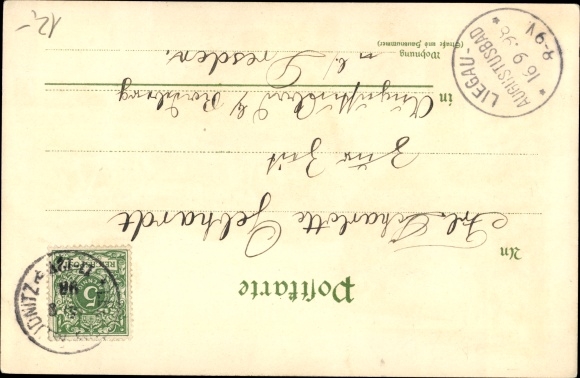 Postkarte
An
Frl. Charlotte Gebhardt
zur Zeit
in Augustusbad b/ Radeberg
Wohnung
(Straße und Hausnummer)
n/ Dresden.
5
98
LIEGAU-
AUGUSTUSBAD
16 9 98
8-9V.
12,-